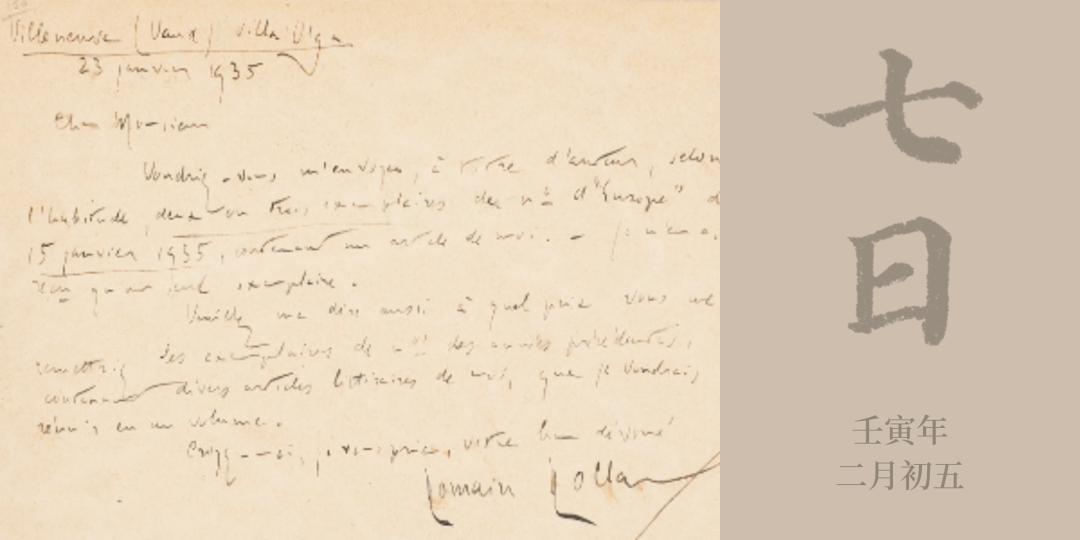 Villeneuve (Vaud) villa Olga
23 janvier 1935
Cher Monsieur
Voudriez-vous m'envoyer, à titre d'auteur, selon
l'habitude, deux ou trois exemplaires des nos d'"Europe" d
15 janvier 1935, contenant un article de moi. – Je n'en ai
reçu qu'un seul exemplaire.
Veuillez me dire aussi à quel prix vous me
remettriez les exemplaires de nos des années précédentes,
contenant divers articles littéraires de moi, que je voudrais
réunir en un volume.
Croyez-moi, je vous prie, votre bien dévoué
Romain Rolland
七
日
壬寅年
二月初五